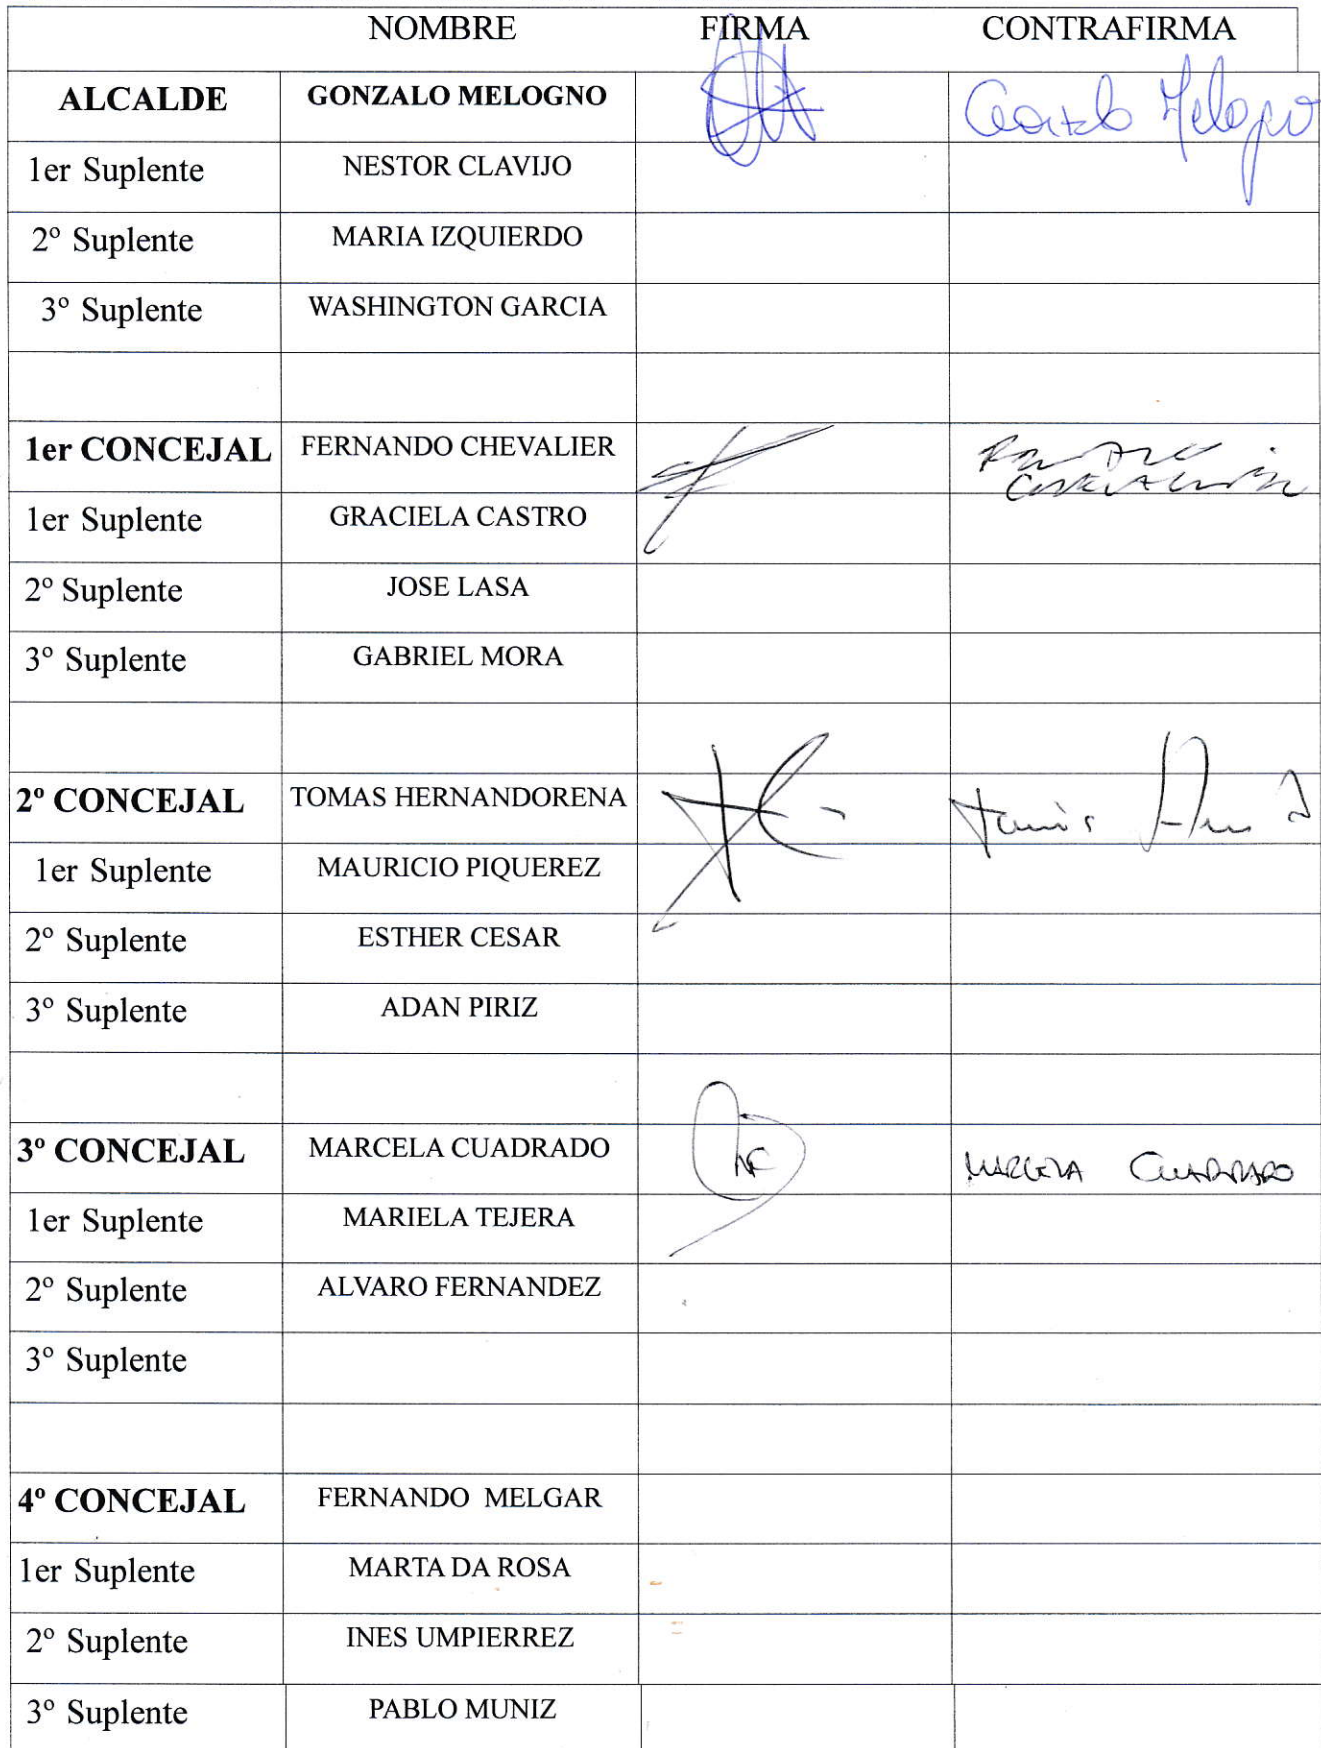 NOMBRE FIRMA CONTRAFIRMA
ALCALDE GONZALO MELOGNO Gonzalo Melogno
1er Suplente NESTOR CLAVIJO
2º Suplente MARIA IZQUIERDO
3º Suplente WASHINGTON GARCIA
1er CONCEJAL FERNANDO CHEVALIER
1er Suplente GRACIELA CASTRO
2º Suplente JOSE LASA
3º Suplente GABRIEL MORA
2º CONCEJAL TOMAS HERNANDORENA Tomás
1er Suplente MAURICIO PIQUEREZ
2º Suplente ESTHER CESAR
3º Suplente ADAN PIRIZ
3º CONCEJAL MARCELA CUADRADO MARCELA CUADRADO
1er Suplente MARIELA TEJERA
2º Suplente ALVARO FERNANDEZ
3º Suplente
4º CONCEJAL FERNANDO MELGAR
1er Suplente MARTA DA ROSA
2º Suplente INES UMPIERREZ
3º Suplente PABLO MUNIZ